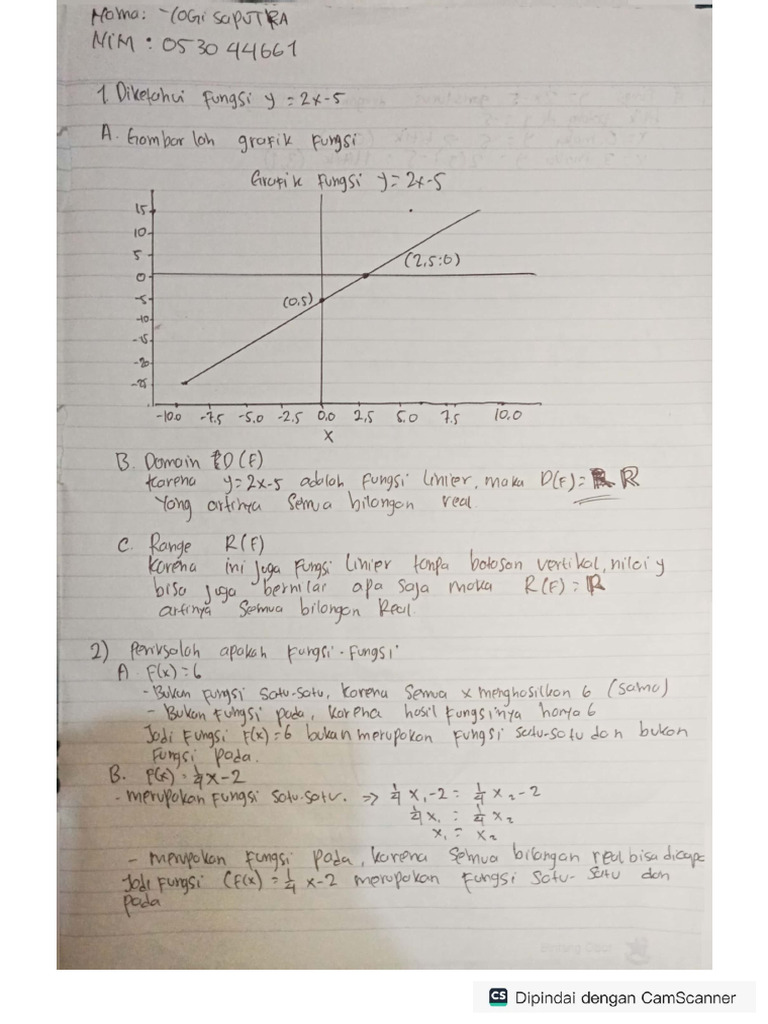 Nama: YOGi SAPUTRA
NIM : 053044661
1. Diketahui Fungsi y = 2x-5
A. Gambar lah grafik fungsi
Grafik Fungsi y = 2x-5
15
10
5
0
-5
-10
-15
-20
-25
(2,5:0)
(0,5)
-10.0 -7.5 -5.0 -2,5 0.0 2,5 5.0 7.5 10.0
X
B. Domain D(F)
Karena y=2x-5 adalah Fungsi linier, maka D(F)= R
Yang artinya Semua bilangan real
C. Range R(F)
Karena ini juga Fungsi Linier tanpa batasan vertikal, nilai y
bisa juga bernilai apa saja maka R(F) = R
artinya Semua bilangan Real.
2) Periksalah apakah Fungsi-Fungsi
A. F(x) = 6
- Bukan Fungsi Satu-Satu, Karena Semua x menghasilkan 6 (sama)
- Bukan Fungsi pada, Karena hasil Fungsinya hanya 6
Jadi Fungsi F(x)=6 bukan merupakan Fungsi satu-satu dan bukan
Fungsi pada.
B. F(x) = 1/4 x - 2
- merupakan Fungsi Satu-Satu. => 1/4 x₁ - 2 = 1/4 x₂ - 2
1/4 x₁ = 1/4 x₂
x₁ = x₂
- merupakan Fungsi Pada, Karena Semua bilangan real bisa dicapa
Jadi Fungsi (F(x) = 1/4 x-2 merupakan Fungsi Satu-Satu dan
pada
CS Dipindai dengan CamScanner